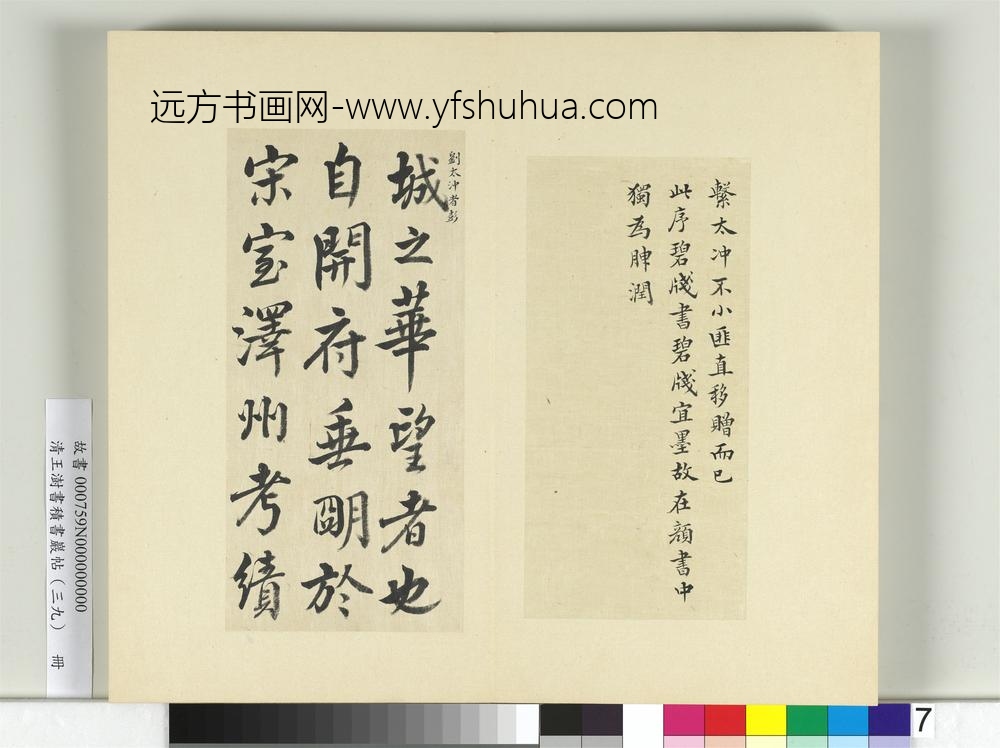 远方书画网-www.yfshuhua.com
繫太冲不小匪直移贈而已
此序碧牋書碧牋宜墨故在顔書中
獨為腴潤
劉太冲者彭
城之華望者也
自開府垂明於
宋室澤州考績
故書 000759N000000000
清王澍書積書巖帖（三九） 冊
7